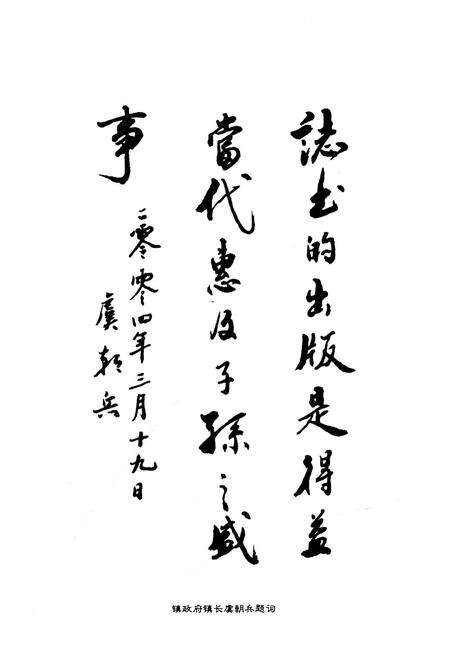 誌书的出版是得益
當代惠及子孫之盛
事
二零零四年三月十九日
虞朝兵
镇政府镇长虞朝兵题词